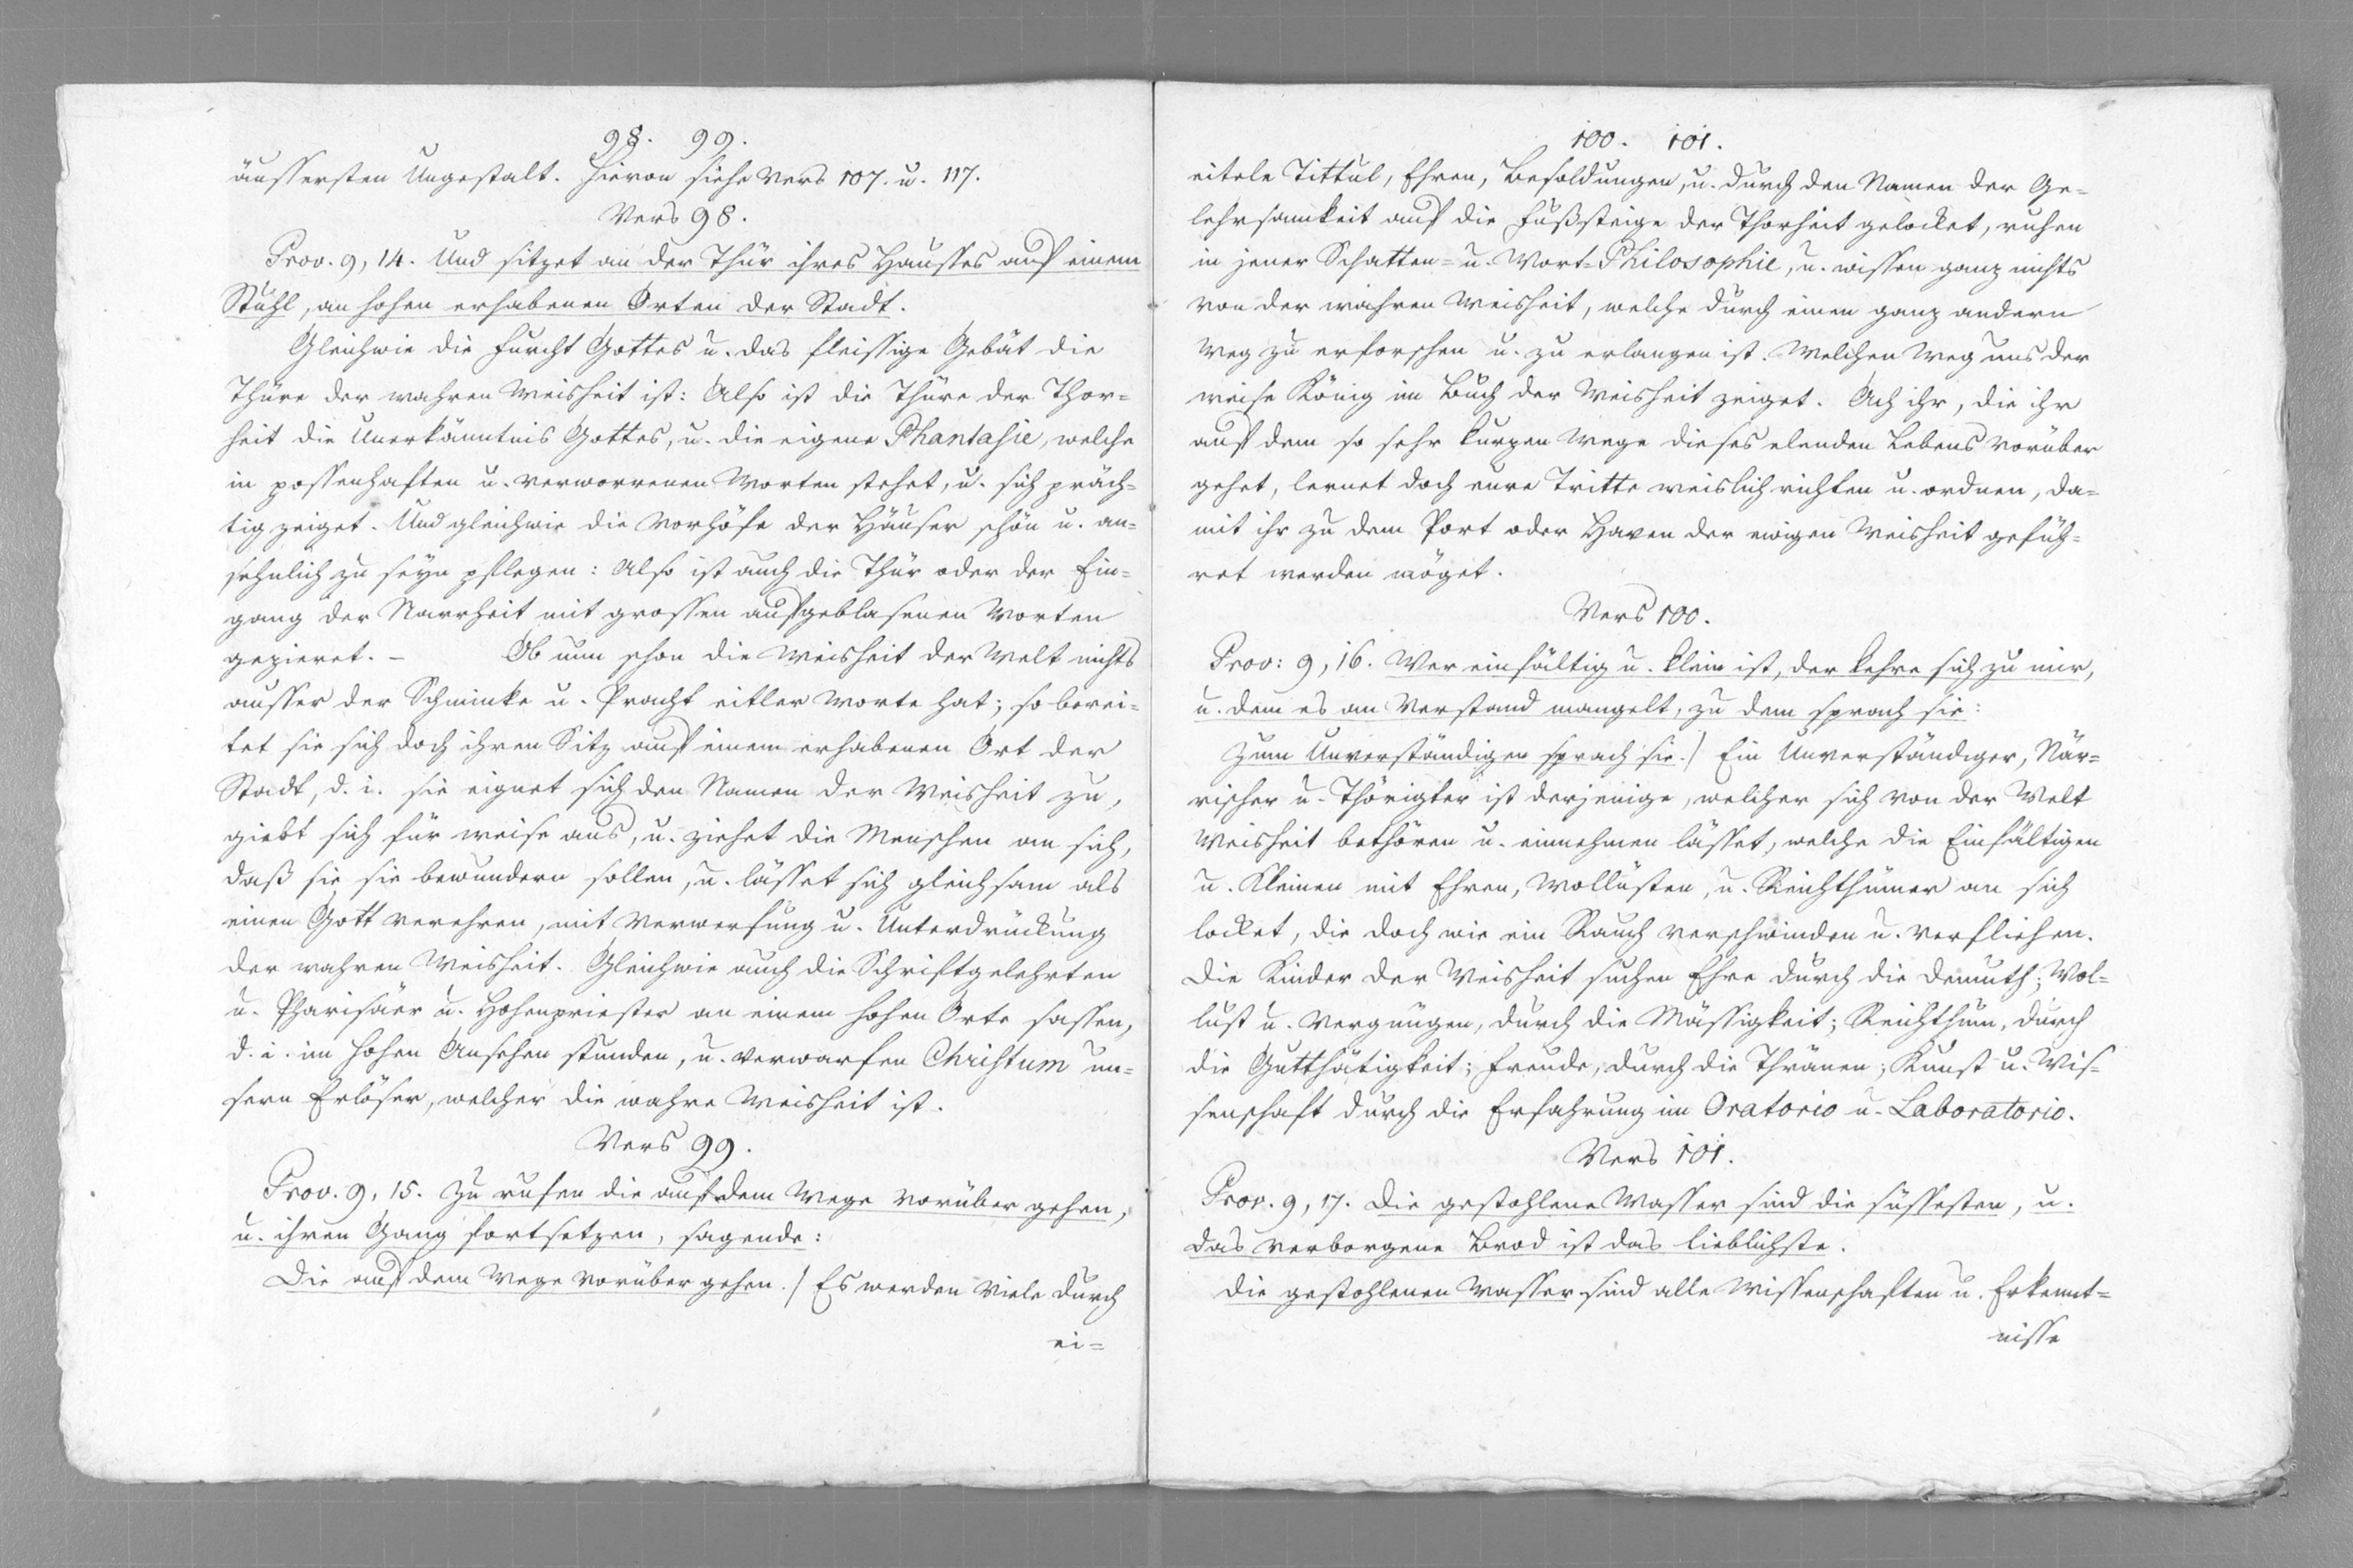 98. 99.
äussersten Ungestalt. Hievon siehe Vers 107. u. 117.
Vers 98.
Prov. 9, 14. Und sitzet an der Thür ihres Hausses auf einem
Stuhl, an hohen erhabenen Orten der Stadt.
Gleichwie die Furcht Gottes u. das fleissige Gebät die
Thüre der wahren Weisheit ist: Also ist die Thüre der Thor=
heit die Unerkänntnis Gottes, u. die eigene Phantasie, welche
in possenhaften u. verworrenen Worten stehet, u. sich präch=
tig zeiget. Und gleichwie die Vorhöfe der Häuser schön u. an=
sehnlich zu seyn pflegen: Also ist auch die Thür oder der Ein=
gang der Narrheit mit grossen aufgeblasenen Worten
gezieret. – Ob nun schon die Weisheit der Welt nichts
ausser der Schminke u. Pracht eitler Worte hat; so berei=
tet sie sich doch ihren Sitz auf einem erhabenen Ort der
Stadt, d. i. sie eignet sich den Namen der Weisheit zu,
giebt sich für weise aus, u. ziehet die Menschen an sich,
daß sie sie bewundern sollen, u. lässet sich gleichsam als
einen Gott verehren, mit Verwerfung u. Unterdrückung
der wahren Weisheit. Gleichwie auch die Schriftgelehrten
u. Pharisäer u. Hohenpriester an einem hohen Orte sassen,
d. i. im hohen Ansehen stunden, u. verwarfen Christum un=
sern Erlöser, welcher die wahre Weisheit ist.
Vers 99.
Prov. 9, 15. Zu rufen die auf dem Wege vorüber gehen,
u. ihren Gang fortsetzen, sagende:
Die auf dem Wege vorüber gehen./ Es werden Viele durch
ei=
100. 101.
eitele Tittul, Ehren, Besoldungen, u. durch den Namen der Ge=
lehrsamkeit auf die Fußsteige der Thorheit gelocket, ruhen
in jener Schatten= u. Wort=Philosophie, u. wissen ganz nichts
von der wahren Weisheit, welche durch einen ganz andern
Weg zu erforschen u. zu erlangen ist. Welchen Weg uns der
weise König im Buch der Weisheit zeiget. Ach ihr, die ihr
auf dem so sehr kurzen Wege dieses elenden Lebens vorüber
gehet, lernet doch eure Tritte weislich richten u. ordnen, da=
mit ihr zu dem Port oder Haven der ewigen Weisheit gefüh=
ret werden möget.
Vers 100.
Prov: 9, 16. Wer einfältig u. klein ist, der kehre sich zu mir,
u. dem es an Verstand mangelt, zu dem sprach sie:
Zum Unverständigen sprach sie./ Ein Unverständiger, När=
rischer u. Thörigter ist derjenige, welcher sich von der Welt
Weisheit bethören u. einnehmen lässet, welche die Einfältigen
u. Kleinen mit Ehren, Wollüsten, u. Reichthümer an sich
locket, die doch wie ein Rauch verschwinden u. verfliehen.
Die Kinder der Weisheit suchen Ehre durch die Demuth; Wol=
lust u. Vergnügen, durch die Mässigkeit; Reichthum, durch
die Gutthätigkeit; Freude, durch die Thränen; Kunst u. Wis=
senschaft durch die Erfahrung im Oratorio u. Laboratorio.
Vers 101.
Prov. 9, 17. Die gestohlene Wasser sind die süssesten, u.
das verborgene Brod ist das lieblichste.
Die gestohlenen Wasser sind alle Wissenschaften u. Erkennt=
nisse